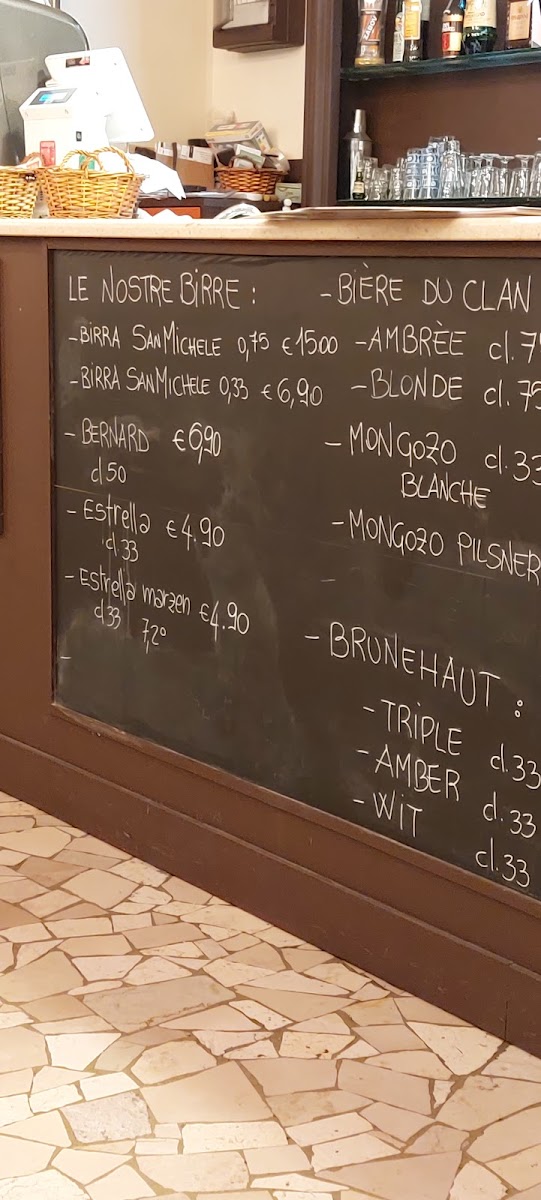 LE NOSTRE BIRRE :
- BIRRA SAN MICHELE 0,75 € 15.00
- BIRRA SAN MICHELE 0,33 € 6,90
- BERNARD € 6,90
cl 50
- Estrella € 4.90
cl.33
- Estrella marzen € 4.90
cl33 7,2°
-
- BIÈRE DU CLAN
- AMBRÈE cl.75
- BLONDE cl.75
- MONGOZO cl.33
BLANCHE
- MONGOZO PILSNER
-
- BRUNEHAUT :
- TRIPLE cl.33
- AMBER cl.33
- WIT cl.33